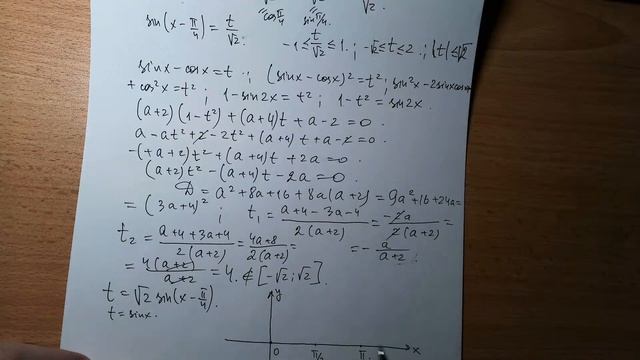 √2.
cos π/4 sin π/4
sin(x − π/4) = t/√2. −1 ≤ t/√2 ≤ 1. ; −√2 ≤ t ≤ 2. ; |t| ≤ √2
sinx − cosx = t ; (sinx − cosx)² = t² ; sin²x − 2sinxcosx+
+ cos²x = t² ; 1 − sin2x = t² ; 1 − t² = sin2x.
(a+2)(1−t²) + (a+4)t + a − 2 = 0.
a − at² + 2 − 2t² + (a+4)t + a − 2 = 0.
−(+a+2)t² + (a+4)t + 2a = 0.
(a+2)t² − (a+4)t − 2a = 0.
D = a² + 8a + 16 + 8a(a+2) = 9a² + 16 + 24a =
= (3a+4)² ; t₁ = (a+4−3a−4)/(2(a+2)) = −2a/(2(a+2)) =
t₂ = (a+4+3a+4)/(2(a+2)) = (4a+8)/(2(a+2)) = = − a/(a+2) .
= 4(a+2)/(a+2) = 4. ∉ [−√2; √2].
t = √2 sin(x − π/4).
t = sinx.
y
0 π x